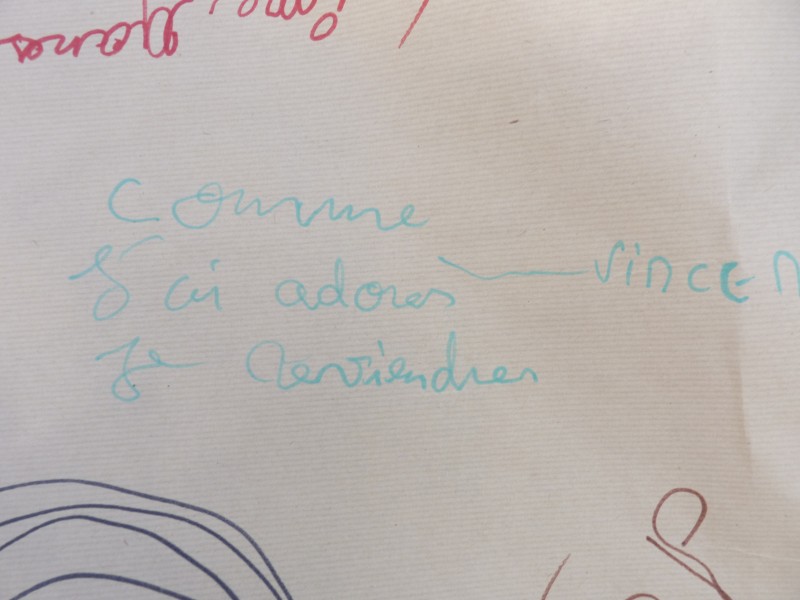 Comme
J'ai adorer VINCEN
Je reviendrer